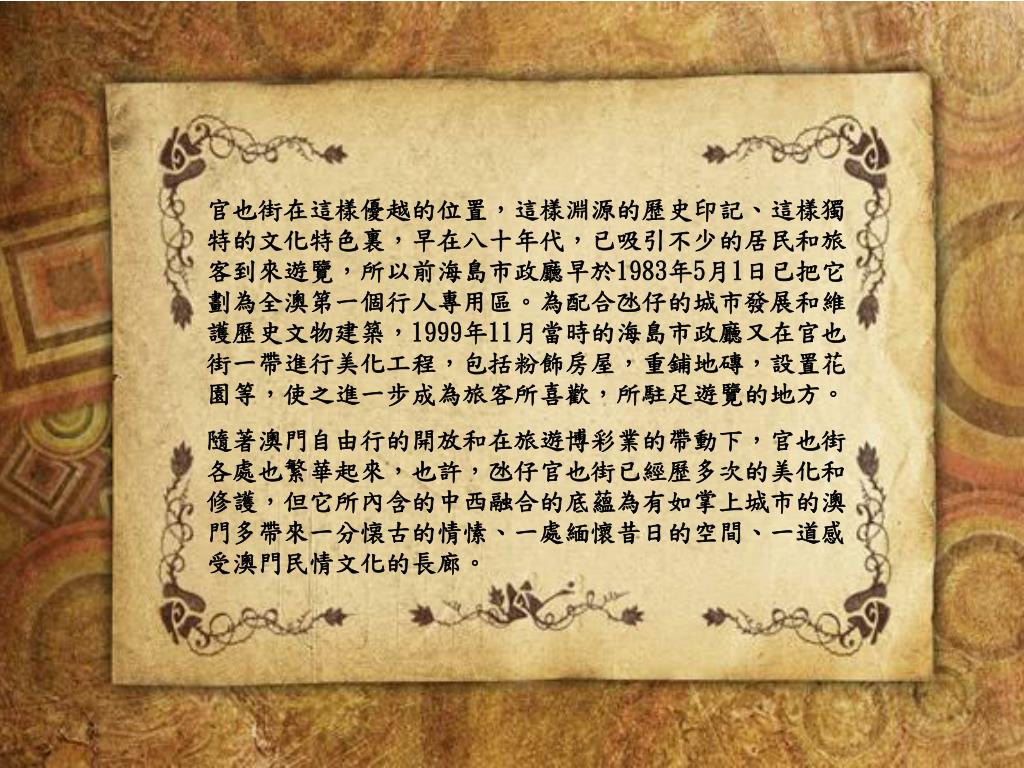 官也街在這樣優越的位置，這樣淵源的歷史印記、這樣獨
特的文化特色裏，早在八十年代，已吸引不少的居民和旅
客到來遊覽，所以前海島市政廳早於1983年5月1日已把它
劃為全澳第一個行人專用區。為配合氹仔的城市發展和維
護歷史文物建築，1999年11月當時的海島市政廳又在官也
街一帶進行美化工程，包括粉飾房屋，重鋪地磚，設置花
園等，使之進一步成為旅客所喜歡，所駐足遊覽的地方。
隨著澳門自由行的開放和在旅遊博彩業的帶動下，官也街
各處也繁華起來，也許，氹仔官也街已經歷多次的美化和
修護，但它所內含的中西融合的底蘊為有如掌上城市的澳
門多帶來一分懷古的情愫、一處緬懷昔日的空間、一道感
受澳門民情文化的長廊。